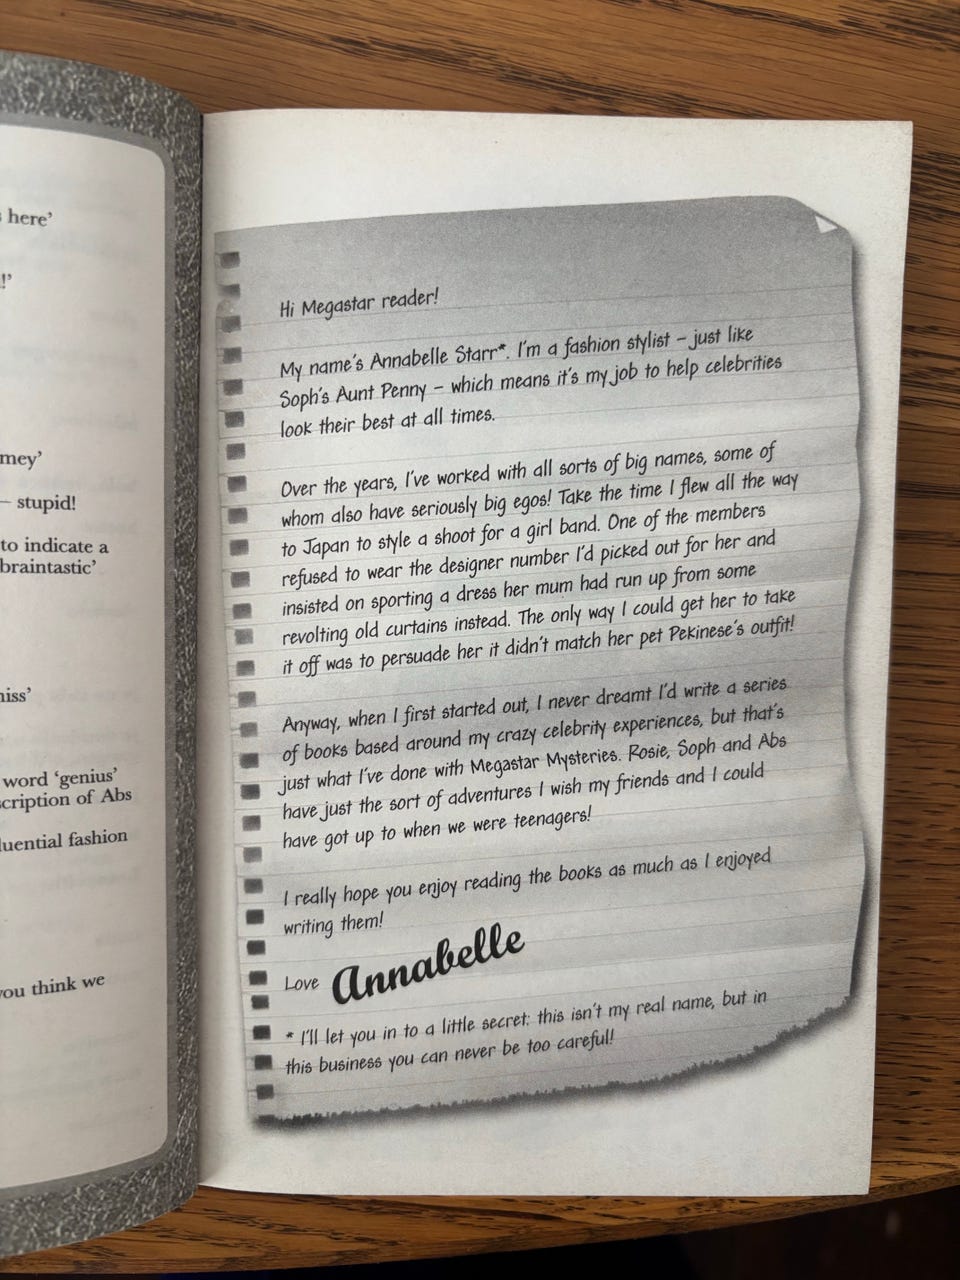 here'
!'
mey'
– stupid!
to indicate a
braintastic'
niss'
word 'genius'
scription of Abs
luential fashion
you think we
Hi Megastar reader!
My name's Annabelle Starr*. I'm a fashion stylist – just like
Soph's Aunt Penny – which means it's my job to help celebrities
look their best at all times.
Over the years, I've worked with all sorts of big names, some of
whom also have seriously big egos! Take the time I flew all the way
to Japan to style a shoot for a girl band. One of the members
refused to wear the designer number I'd picked out for her and
insisted on sporting a dress her mum had run up from some
revolting old curtains instead. The only way I could get her to take
it off was to persuade her it didn't match her pet Pekinese's outfit!
Anyway, when I first started out, I never dreamt I'd write a series
of books based around my crazy celebrity experiences, but that's
just what I've done with Megastar Mysteries. Rosie, Soph and Abs
have just the sort of adventures I wish my friends and I could
have got up to when we were teenagers!
I really hope you enjoy reading the books as much as I enjoyed
writing them!
Love Annabelle
* I'll let you in to a little secret: this isn't my real name, but in
this business you can never be too careful!